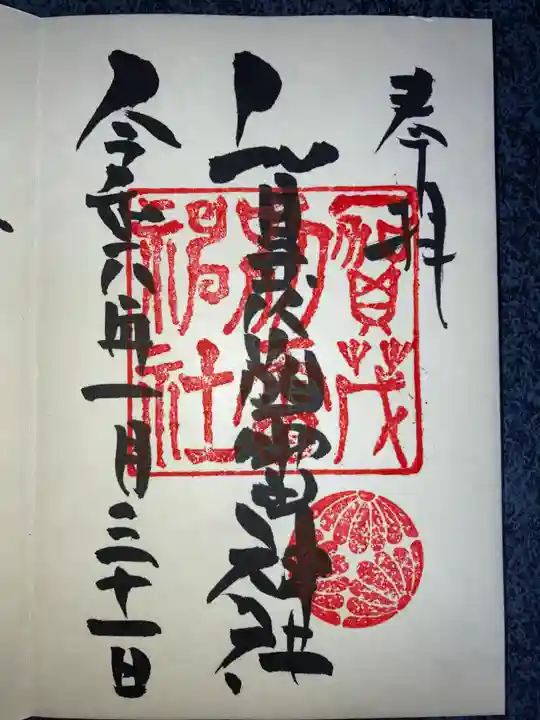 奉拝
賀茂別雷神社
令和六年一月三十一日
賀茂
別雷
神社